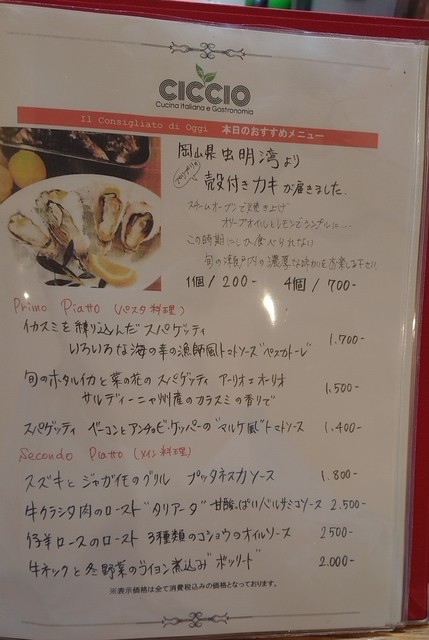 CICCIO
Cucina Italiana e Gastronomia
Il Consigliato di Oggi 本日のおすすめメニュー
岡山県虫明湾より
殻付きカキが届きました
スチームオーブンで焼き上げ
オリーブオイルとレモンでシンプルに…
この時期にしか食べられない
旬の瀬戸内の濃厚な味わいをお楽しみ下さい
1個/200- 4個/700-
Primo Piatto (パスタ料理)
イカスミを練り込んだスパゲッティ
いろいろな海の幸の漁師風トマトソース"ペスカトーレ" 1.700-
旬のホタルイカと菜の花のスパゲッティ アーリオエオーリオ
サルディーニャ州産のカラスミの香りで 1,500-
スパゲッティ ベーコンとアンチョビ・ケッパーの"マルケ風"トマトソース 1.400-
Secondo Piatto (メイン料理)
スズキとジャガイモのグリル プッタネスカソース 1.800-
牛クラシタ肉のロースト"タリアータ" 甘酸っぱいバルサミコソース 2.500-
仔羊ロースのロースト 3種類のコショウのオイルソース 2500-
牛ネックと冬野菜のブイヨン煮込み"ボッリート" 2.000-
※表示価格は全て消費税込みの価格となっております。